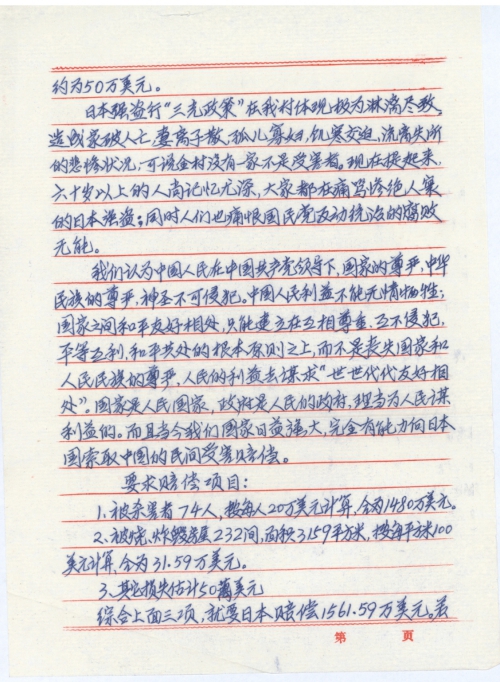 约为50万美元。
日本强盗行“三光政策”在我村体现极为淋漓尽致,
造成家破人亡,妻离子散,孤儿寡妇,饥寒交迫,流离失所
的悲惨状况,可说全村没有一家不是受害者,现在提起来,
六十岁以上的人尚记忆尤深,大家都在痛骂惨绝人寰
的日本强盗;同时人们也痛恨国民党反动统治的腐败
无能。
我们认为中国人民在中国共产党领导下,国家的尊严,中华
民族的尊严,神圣不可侵犯。中国人民利益不能无情牺牲;
国家之间和平友好相处,只能建立在互相尊重,互不侵犯,
平等互利,和平共处的根本原则之上,而不是丧失国家和
人民民族的尊严,人民的利益去谋求“世世代代友好相
处”。国家是人民国家,政府是人民的政府,理当为人民谋
利益的。而且当今我们国家日益强大,完全有能力向日本
国索取中国的民间受害赔偿。
要求赔偿项目:
1.被杀害者74人,按每人20万美元计算,合为1480万美元。
2.被烧、炸毁房屋232间,面积3159平方米,按每平方米100
美元计算,合为31.59万美元。
3、其它损失估计50萬美元
综合上面三项,就要日本赔偿1561.59万美元。若
第 页